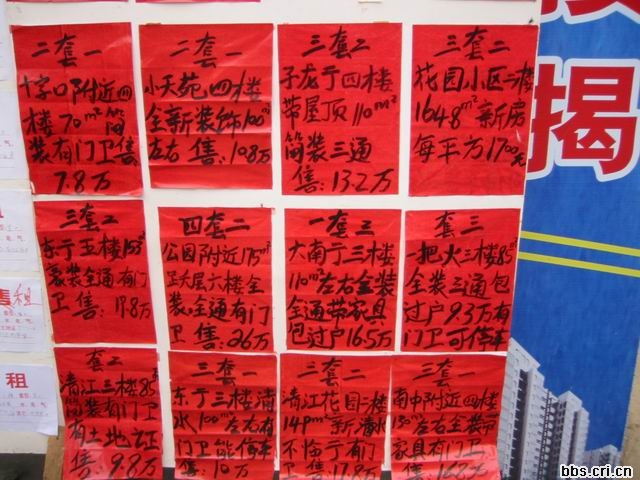 二套一
十字口附近四
楼70m²简
装有门卫售
7.8万
二套一
小天苑四楼
全新装饰100m²
左右售:10.8万
三套二
子龙亍四楼
带屋顶110m²
简装三通
售:13.2万
三套二
花园小区三楼
164.8m²新房
每平方1700元
三套二
东亍五楼
豪装全通有门
卫售:17.8万
四套二
公园附近175m²
跃大层六楼全
装全通有门
卫售:26万
一套三
大南亍三楼
110m²左右全装
全通带家具
包过户16.5万
套三
一把火三楼85m²
全装三通包
过户9.3万有
门卫可停车
套二
清江三楼85m²
简装有门卫
有土地证
售:9.8万
三套一
东亍三楼清
水100m²左右有
门卫能停车
售:10万
三套二
清江花园二楼
149m²新清水
不临亍有门
卫售:17.8万
三套一
南中附近四楼
130m²左右全装带
家具有门卫
售:16.8万
揭
售租
租
租
bbs.cri.cn